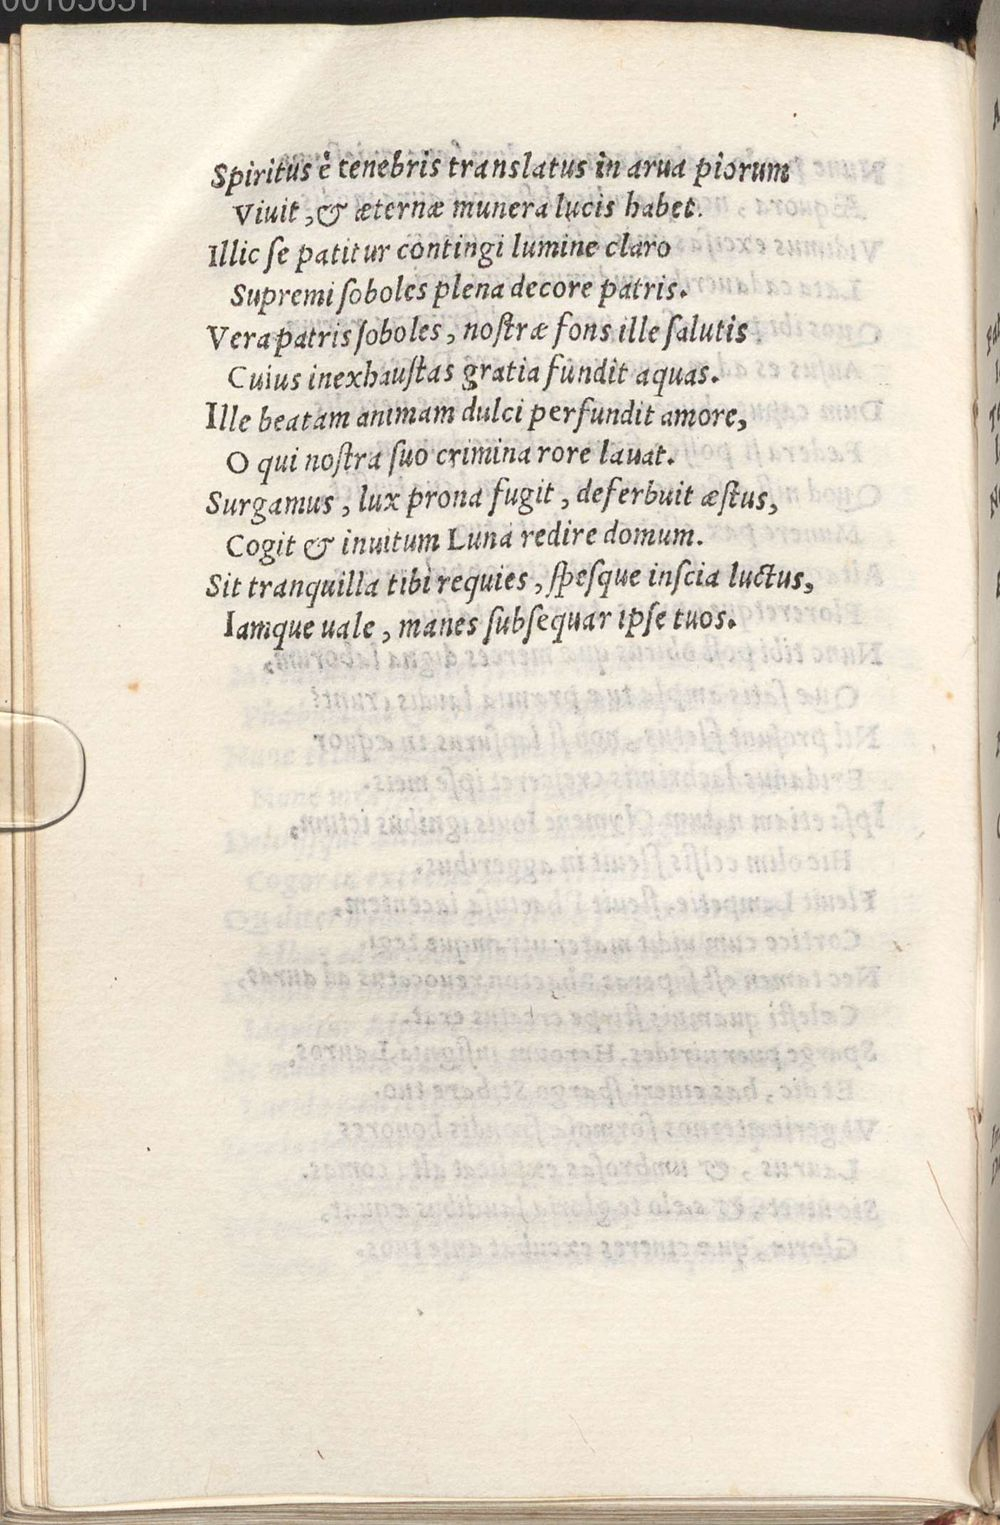 Spiritus è tenebris translatus in arua piorum
Viuit, & æternæ munera lucis habet.
Illic se patitur contingi lumine claro
Supremi soboles plena decore patris.
Vera patris soboles, nostræ fons ille salutis
Cuius inexhaustas gratia fundit aquas.
Ille beatam animam dulci perfundit amore,
O qui nostra suo crimina rore lauat.
Surgamus, lux prona fugit, deferbuit æstus,
Cogit & inuitum Luna redire domum.
Sit tranquilla tibi requies, spesque inscia luctus,
Iamque uale, manes subsequar ipse tuos.